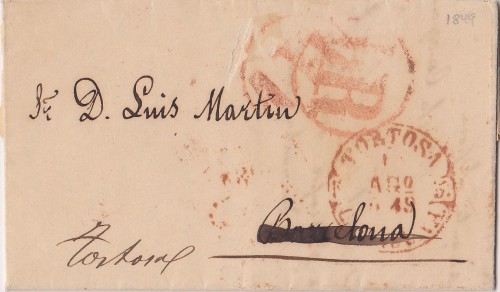 1849
R
Sr. D. Luis Martin
TORTOSA
1
AGO
Barcelona
Tortosa